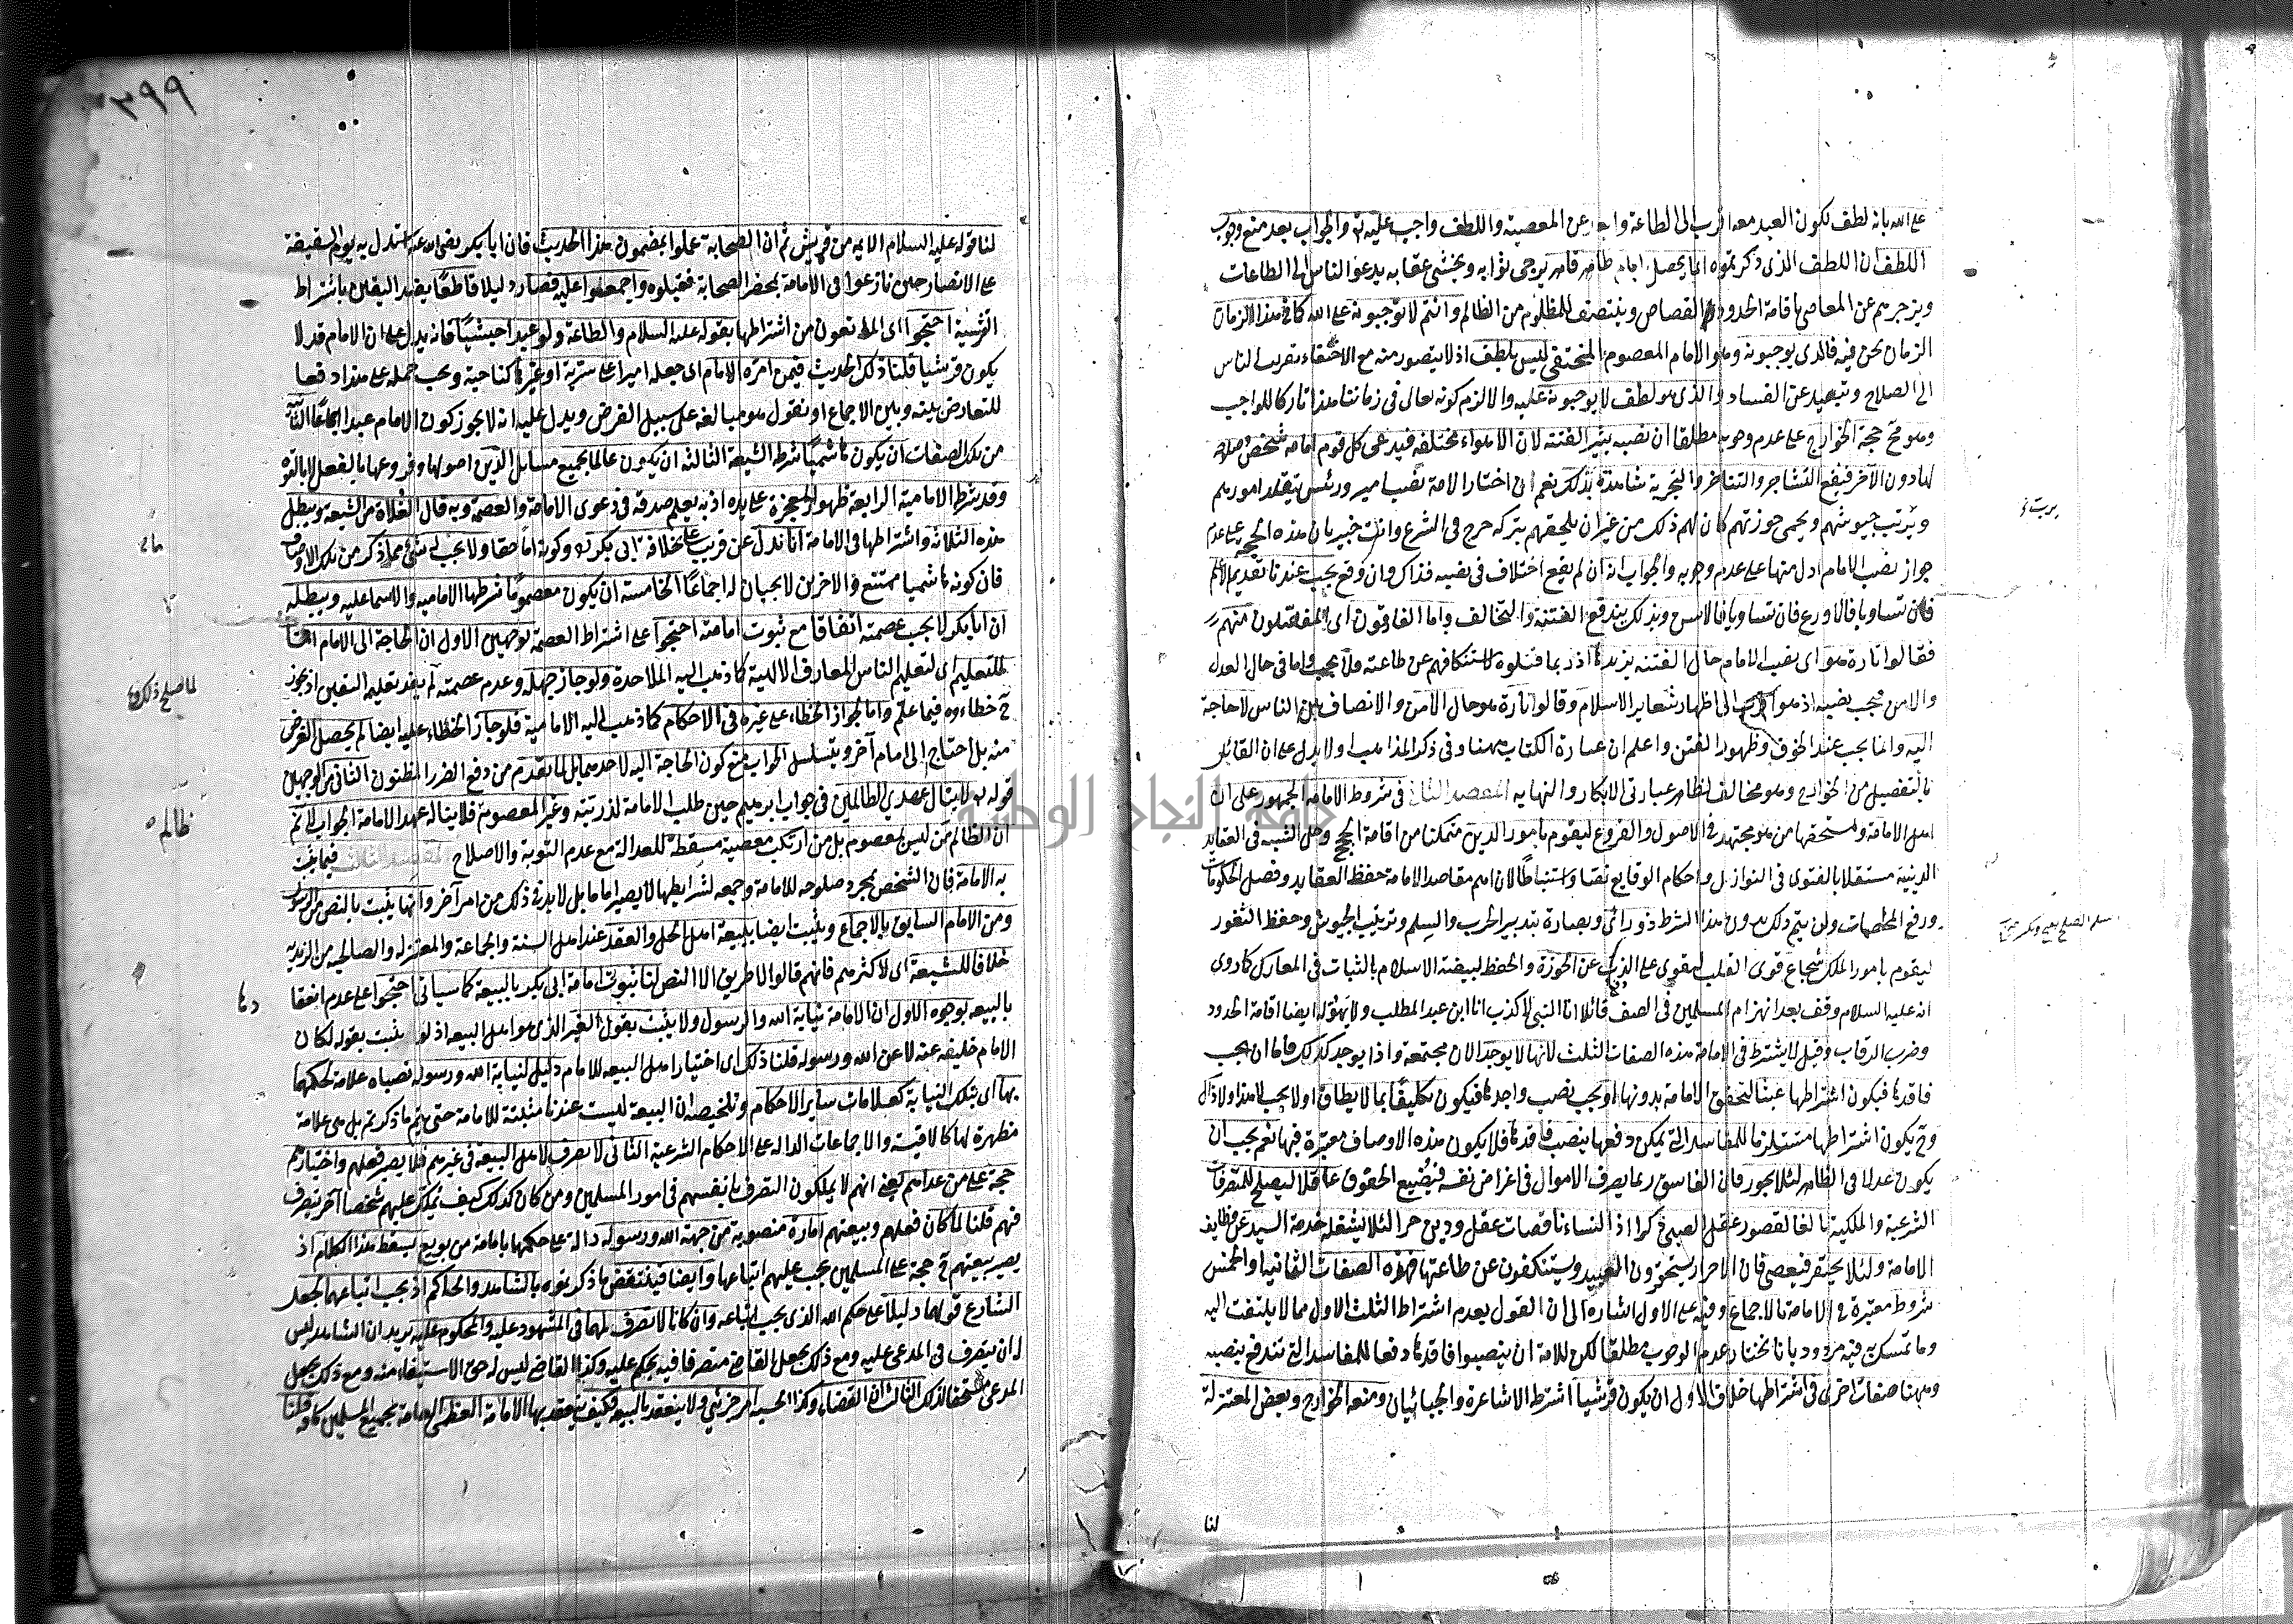 على الله بانه لطف لكون العبد معه اقرب الى الطاعة وابعد عن المعصية واللطف واجب عليه تع والجواب بعد منع وجوب
اللطف ان اللطف الذى ذكرتموه انما يحصل بامام ظاهر قاهر يرجى ثوابه ويخشى عقابه يدعو الناس الى الطاعات
ويزجرهم عن المعاصى باقامة الحدود والقصاص وينتصف للمظلوم من الظالم وانتم لا توجبونه على الله كما فى هذا الزمان
الزمان نحن فيه فالذى توجبونه وهو الامام المعصوم المختفى ليس بلطف اذ لا يتصور منه مع الاختفاء تقريب الناس
الى الصلاح وتبعيد عن الفساد والذى هو لطف لا توجبونه عليه والا لزم كونه تعالى فى زماننا هذا تاركا للواجب
وهو مح حجة الخوارج على عدم وجوبه مطلقا ان نصبه يثير الفتنة لان الاهواء مختلفة فيدعى كل قوم امامة شخص وصلاحه
لها دون الآخر فيقع التشاجر والتناحر والتجربة شاهدة بذلك نعم ان اختار الامة نصب امير ورئيس يتقلد امورهم
ويرتب جيوشهم ويحمى حوزتهم كان لهم ذلك من غير ان يلحقهم بتركه حرج فى الشرع وانت خبير بان هذه الحجج على عدم
جواز نصب الامام ادل منها على عدم وجوبه والجواب انه ان لم يقع اختلاف فى نصبه فذاك وان وقع يجب عندنا تقديم الاعلم
فان تساويا فالاورع فان تساويا فالاسن وبذلك يندفع الفتنة والتخالف واما الفارقون اى المفصلون منهم
فقالوا تارة هو اى نصب الامام حال الفتنة يزيدها اذ ربما قتلوه لاستنكافهم عن طاعته ولا يجب واما فى حال العدل
والامن فيجب نصبه اذ هو اقرب الى اظهار شعاير الاسلام وقالوا تارة هو حال الامن والانصاف بين الناس لا حاجة
اليه وانما يجب عند الخوف وظهور الفتن واعلم ان عبارة الكتاب ههنا وفى ذكر المذاهب اولا يدل على ان القائل
بالتفصيل من الخوارج وهو مخالف لظاهر عبارتى الابكار والنهاية المقصد الثانى فى شروط الامامة الجمهور على ان
اهل الامامة ومستحقها من هو مجتهد فى الاصول والفروع ليقوم بامور الدين متمكنا من اقامة الحجج وحل الشبه فى العقايد
الدينية مستقلا بالفتوى فى النوازل واحكام الوقايع نصا واستنباطا لان اهم مقاصد الامامة حفظ العقايد وفصل الحكومات
ورفع المخاصمات ولن يتم ذلك بدون هذا الشرط ذو راى وبصارة بتدبير الحرب والسلم وترتيب الجيوش وحفظ الثغور
ليقوم بامور الملك شجاع قوى القلب ليقوى على الذب عن الحوزة والحفظ لبيضة الاسلام بالثبات فى المعارك كما روى
انه عليه السلام وقف بعد انهزام المسلمين فى الصف قائلا انا النبى لا كذب انا ابن عبد المطلب ولا يهوله ايضا اقامة الحدود
وضرب الرقاب وقيل لا يشترط فى الامامة هذه الصفات الثلث لانها لا يوجد الان مجتمعة واذا لم يوجد كذلك فاما ان يجب
فاقدها فيكون اشتراطها عبثا لتحقق الامامة بدونها او يجب نصب واجدها فيكون تكليفا بما لا يطاق او لا يجب لا هذا ولا ذاك
وح يكون اشتراطها مستلزما للمفاسد التى يمكن دفعها بنصب فاقدها فلا يكون هذه الاوصاف معتبرة فيها نعم يجب ان
يكون عدلا فى الظاهر لئلا يجور فان الفاسق ربما يصرف الاموال فى اغراض نفسه فيضيع الحقوق عاقلا ليصلح للتصرفات
الشرعية والملكية بالغا لقصور عقل الصبى ذكرا اذ النساء ناقصات عقل ودين حرا لئلا يشغله خدمة السيد عن وظايف
الامامة ولئلا يحتقر فيعصى فان الاحرار يستحقرون العبيد ويستنكفون عن طاعتها فهذه الصفات الثمانية او الخمس
شروط معتبرة فى الامامة بالاجماع وفيه على الاول اشارة الى ان القول بعدم اشتراط الثلث الاول مما لا يلتفت اليه
وما تمسك به فيه مردود بانا نختار عدم الوجوب مطلقا لكن للامة ان ينصبوا فاقدها دفعا للمفاسد التى تندفع بنصبه
وههنا صفات اخرى فى اشتراطها خلاف الاول ان يكون قرشيا اشترط الاشاعرة والجبائيان ومنعه الخوارج وبعض المعتزلة
لنا
٣٩٩
لنا قوله عليه السلام الايمة من قريش ثم ان الصحابة عملوا بمضمون هذا الحديث فان ابا بكر رضى الله عنه استدل به يوم السقيفة
على الانصار حين نازعوا فى الامامة بمحضر الصحابة فقبلوه واجمعوا عليه فصار دليلا قاطعا يفيد اليقين باشتراط
القرشية احتجوا اى المانعون من اشتراطها بقوله عليه السلام والطاعة ولو عبدا حبشيا فانه يدل على ان الامام قد لا
يكون قرشيا قلنا ذلك الحديث فيمن امره الامام اى جعله اميرا على سرية او غيرها كناحية ويجب حمله على هذا دفعا
للتعارض بينه وبين الاجماع او نقول هو مبالغة على سبيل الفرض ويدل عليه انه لا يجوز كون الامام عبدا اجماعا الثانية
من تلك الصفات ان يكون هاشميا شرط الشيعة الثالثة ان يكون عالما بجميع مسايل الدين اصولها وفروعها بالفعل لا بالقوة
وقد شرط الامامية الرابعة ظهور المعجزة على يده اذ به يعلم صدقه فى دعوى الامامة والعصمة وبه قال الغلاة من الشيعة ويبطل
هذه الثلاثة واشتراطها فى الامامة انا ندل عن قريب على خلافة ابى بكر وكونه اماما حقا ولا يجب له شئ مما ذكر من تلك الاوصاف
فان كونه هاشميا ممتنع والاخرين لا يجبان له اجماعا الخامسة ان يكون معصوما شرطها الامامية والاسماعلية ويبطله
ان ابا بكر لا يجب عصمته اتفاقا مع ثبوت امامته احتجوا على اشتراط العصمة بوجهين الاول ان الحاجة الى الامام اما
للتعليم اى لتعليم الناس المعارف الالهية كما ذهب اليه الملاحدة ولو جاز جهله وعدم عصمته لم يفد تعليمه اليقين اذ يجوز
ح خطاءوه فيما علم واما لجواز الخطاء على غيره فى الاحكام كما ذهب اليه الامامية فلو جاز الخطاء عليه ايضا لم يحصل الغرض
منه بل احتاج الى امام آخر ويتسلسل الجواب منع كون الحاجة اليه لاحدهما بل لما تقدم من دفع الضرر المظنون الثانى من الوجهين
قوله تع لا ينال عهدى الظالمين فى جواب ابرهيم حين طلب الامامة لذريته وغير المعصوم فلا يناله عهد الامامة الجواب لا نم
ان الظالم من ليس بمعصوم بل من ارتكب معصية مسقطة للعدالة مع عدم التوبة والاصلاح المقصد الثالث فيما يثبت
به الامامة فان الشخص بمجرد صلوحه للامامة وجمعه لشرايطها لا يصير اماما بل لا بد فى ذلك من امر آخر وانها يثبت بالنص من الرسول
ومن الامام السابق بالاجماع ويثبت ايضا ببيعة اهل الحل والعقد عند اهل السنة والجماعة والمعتزلة والصالحية من الزيدية
خلافا للشيعة اى لاكثرهم فانهم قالوا لا طريق الا النص لنا ثبوت امامة ابى بكر بالبيعة كما سياتى احتجوا على عدم انعقا
بالبيعة بوجوه الاول ان الامامة نيابة الله والرسول ولا يثبت بقول الغير الذى هو اهل البيعة اذ لو يثبت بقوله لكان
الامام خليفة عنه لا عن الله ورسوله قلنا ذلك اى اختيار اهل البيعة للامام دليل لنيابة الله ورسوله نصباه علامة لحكمهما
بها اى بتلك النيابة كعلامات ساير الاحكام وتلخيصه ان البيعة ليست عندنا مثبتة للامامة حتى يتم ما ذكرتم بل هى علامة
مظهرة لها كالاقيسة والاجماعات الدالة على الاحكام الشرعية الثانى لا تصرف لاهل البيعة فى غيرهم فلا يصير فعلهم واختيارهم
حجة على من عداهم يعنى انهم لا يملكون التصرف بانفسهم فى امور المسلمين ومن كان كذلك كيف يملك عليهم شخصا آخر يتصرف
فيهم قلنا لما كان فعلهم وبيعتهم امارة منصوبة من جهة الله ورسوله دالة على حكمهما بامامة من بويع سقط هذا الكلام اذ
يصير بيعتهم ح حجة على المسلمين يجب عليهم اتباعها وايضا فينتقض ما ذكرتموه بالشاهد والحاكم اذ يجب اتباعهما لجعل
الشارع قولهما دليلا على حكم الله الذى يجب اتباعه وان كانا لا تصرف لهما فى المشهود عليه والمحكوم عليه يريد ان الشاهد ليس
له ان يتصرف فى المدعى عليه ومع ذلك يجعل القاضى متصرفا فيه بحكم عليه وكذا القاضى ليس له حق الاستيفاء منه ومع ذلك يجعل
المدعى مستحقا لذلك الثالث ان القضاء وكذا الحسبة امر جزئى ولا ينعقد بالبيعة فكيف ينعقد بها الامامة العظمى العامة بجميع المسلمين كافة قلنا
لما صلح ذلك
ظالم
دها
جامعة النجاح الوطنية